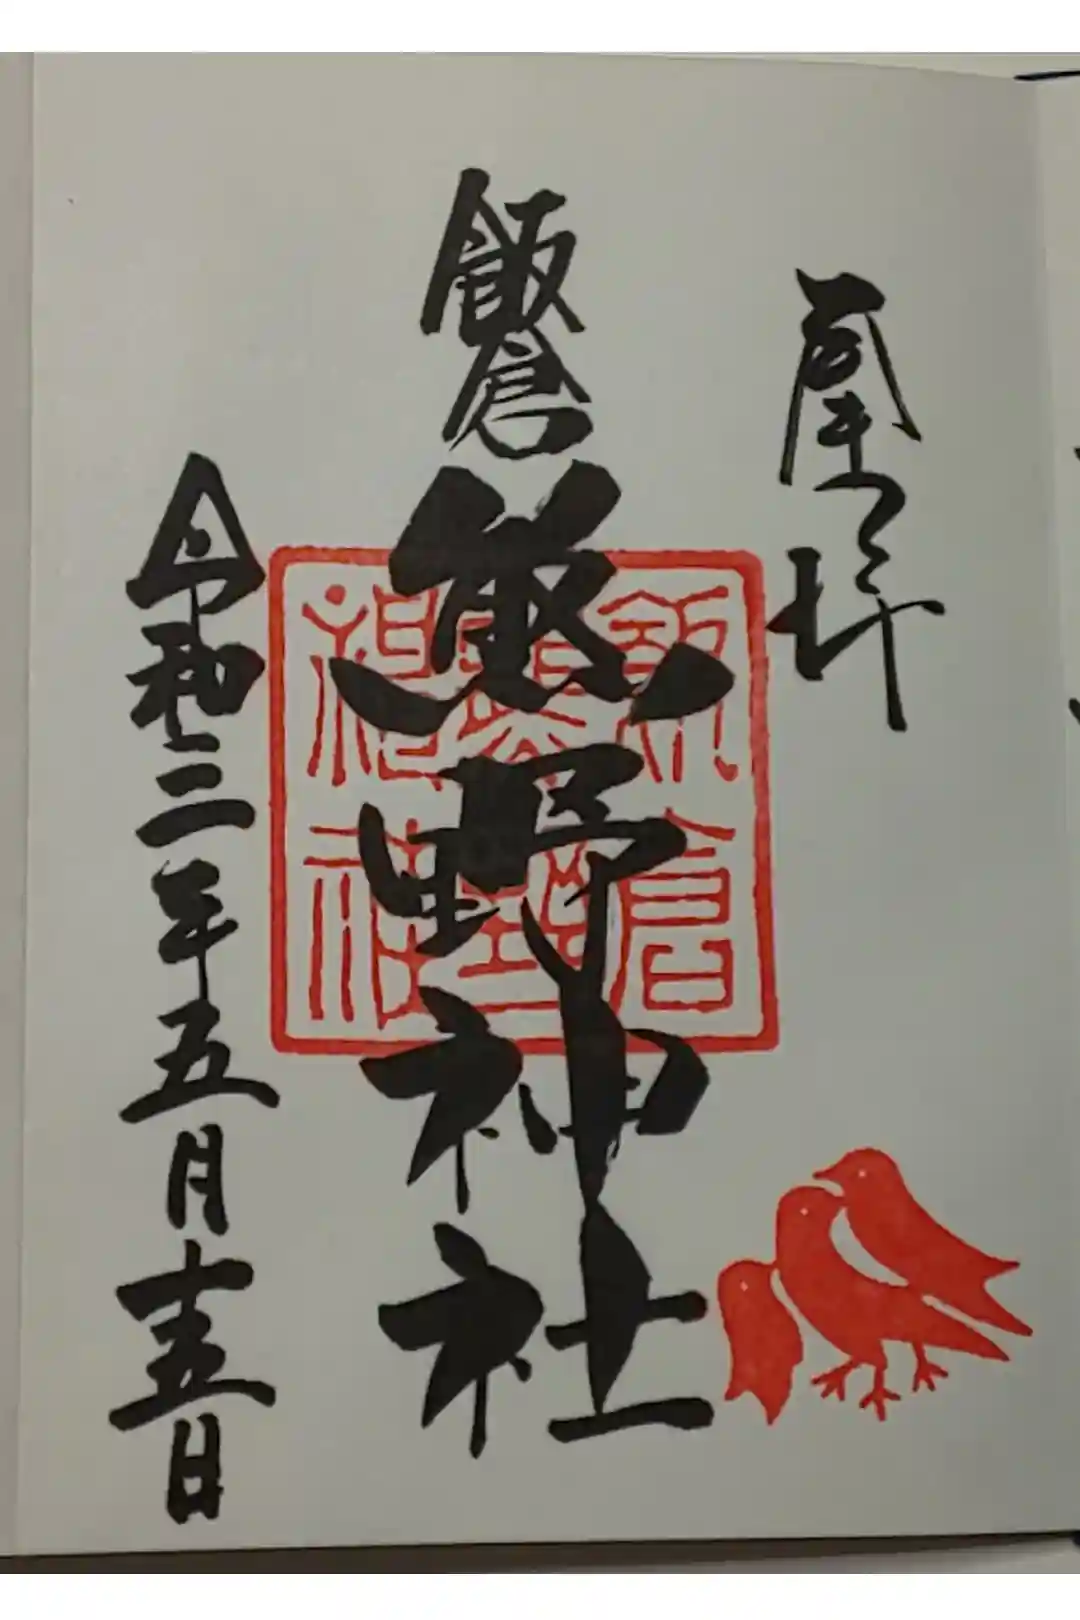 奉拝
飯倉
熊野神社
飯倉
熊野
神社
令和二年五月十五日